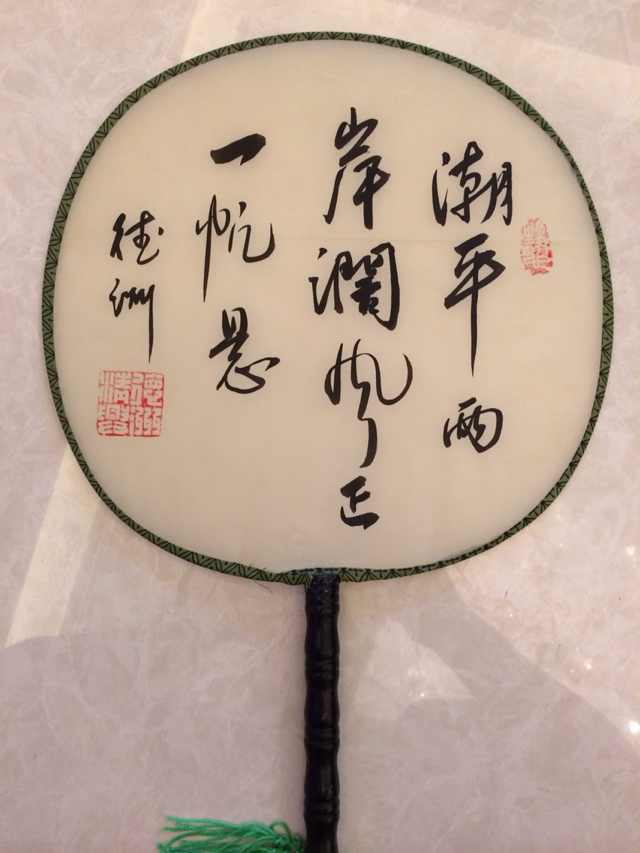 潮平两
岸阔风正
一帆悬
德洲